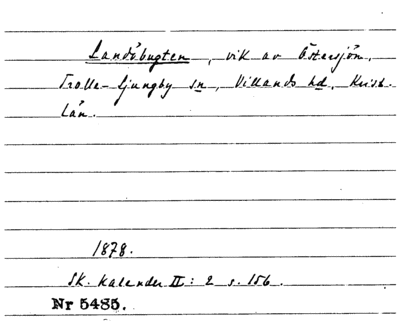 Landöbugten, vik av Östersjön,
Trolle-Ljungby sn, Villands hd, Krist.
län.
1878.
Sk. Kalender II: 2 s. 156.
Nr 5485.